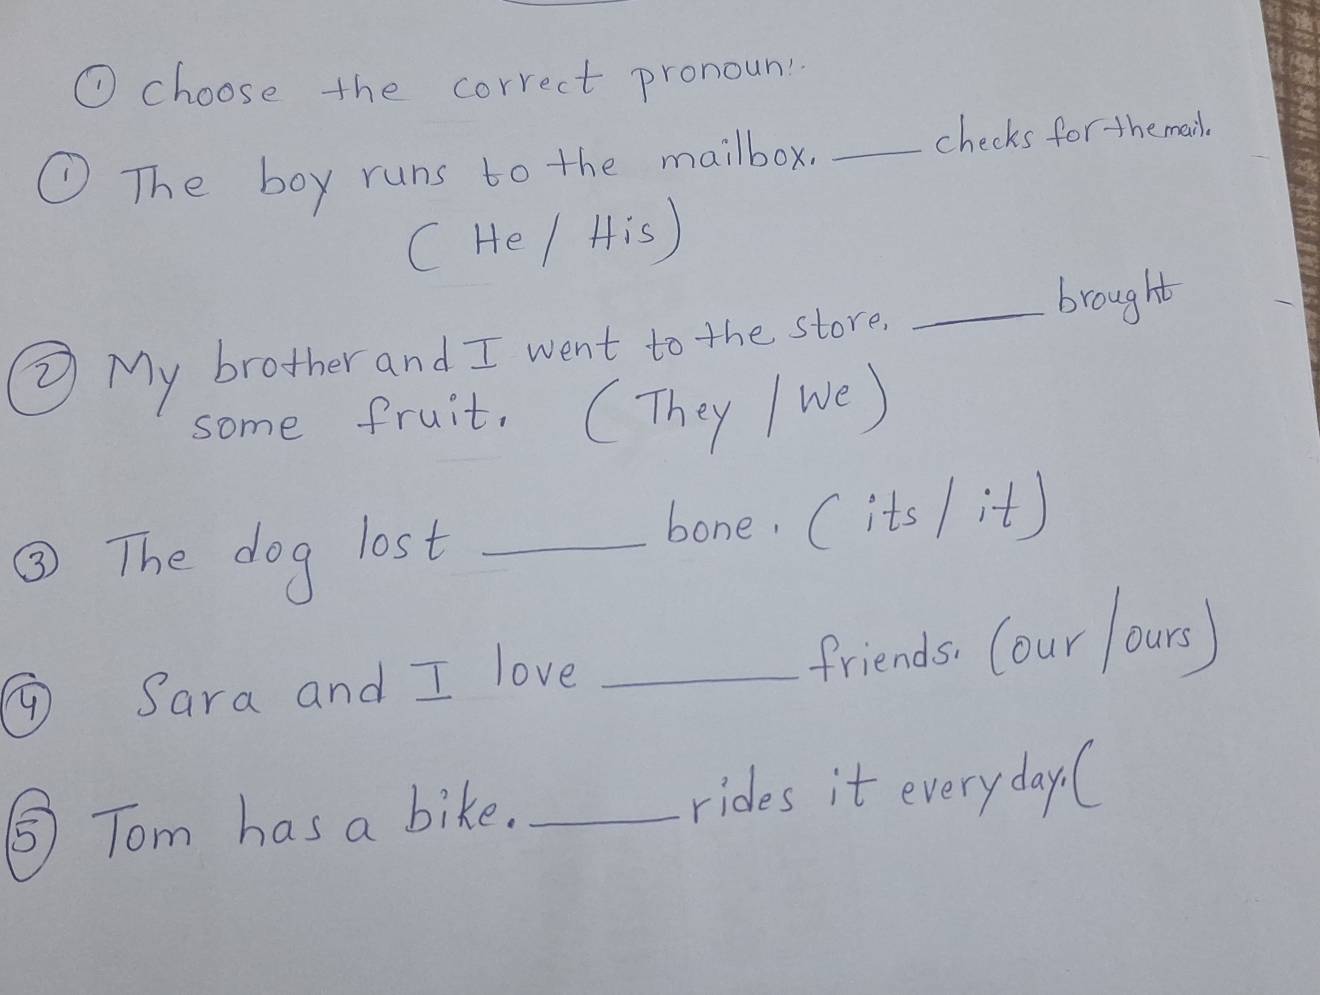 ① choose the correct pronoun:
① The boy runs to the mailbox. ___ checks for the mail.
( He / His )
② My brother and I went to the store. ___ brought
some fruit. ( They / We )
③ The dog lost ___ bone. ( its / it )
④ Sara and I love ___ friends. (our / ours)
⑤ Tom has a bike. ___ rides it every day. (